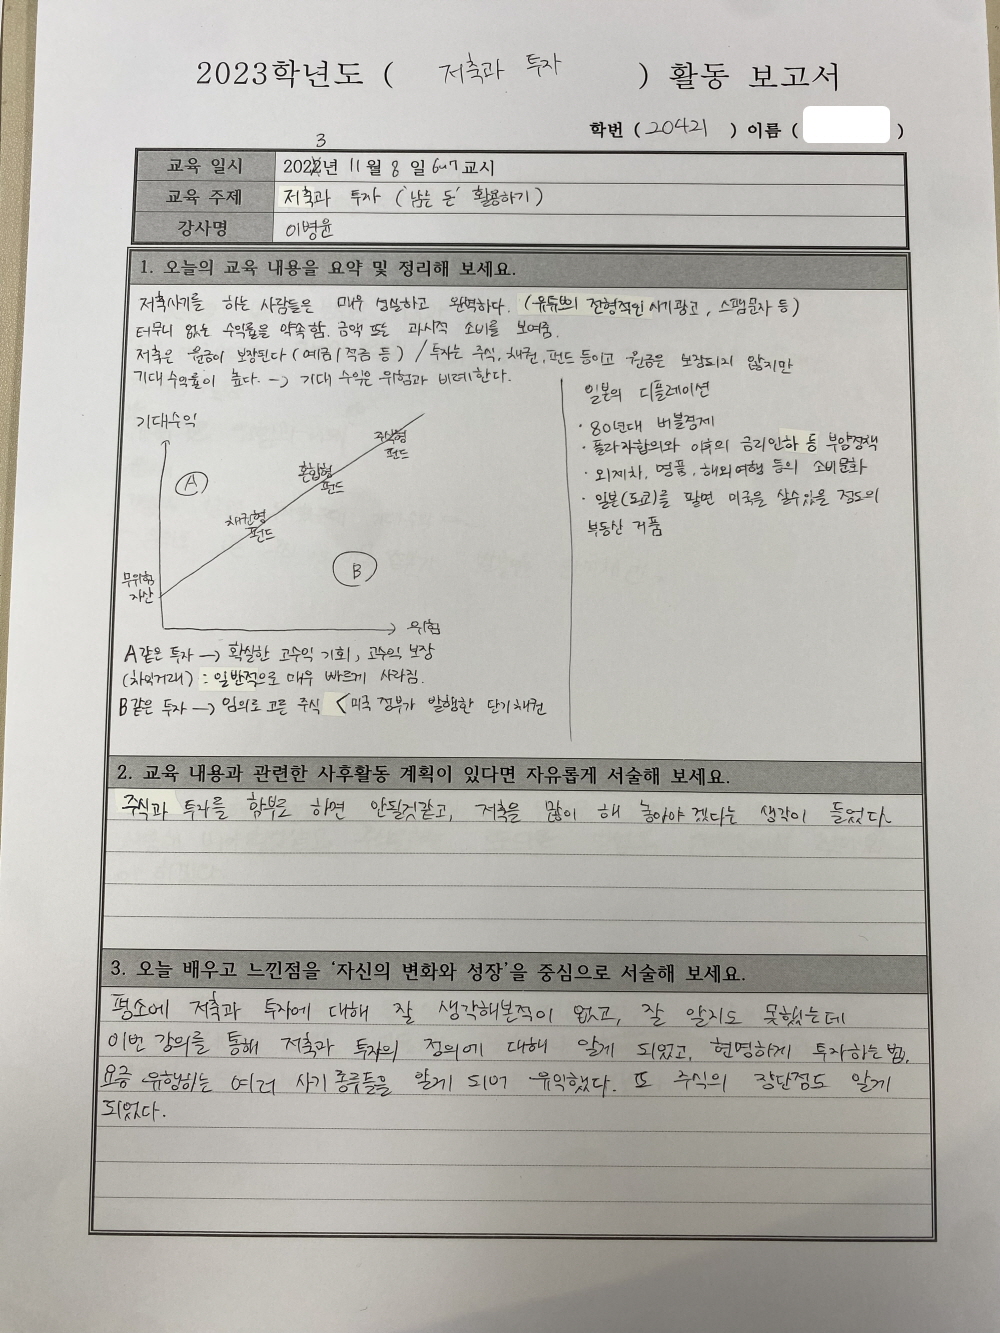 2023학년도 ( 저축과 투자 ) 활동 보고서
학번 ( 20421 ) 이름 ( )
3
교육 일시 2022년 11월 8일 6~7교시
교육 주제 저축과 투자 ('남는 돈' 활용하기)
강사명 이병윤
1. 오늘의 교육 내용을 요약 및 정리해 보세요.
저축사기를 하는 사람들은 매우 성실하고 완벽하다. (유튜브의 전형적인 사기광고, 스팸문자 등)
터무니 없는 수익률을 약속함. 금액 또는 과시적 소비를 보여줌.
저축은 원금이 보장된다 (예금/적금 등) / 투자는 주식, 채권, 펀드 등이고 원금은 보장되지 않지만
기대 수익률이 높다. → 기대 수익은 위험과 비례한다.
기대수익
A
주식형
펀드
혼합형
펀드
채권형
펀드
B
무위험
자산
위험
A같은 투자 → 확실한 고수익 기회, 고수익 보장
(차익거래) : 일반적으로 매우 빠르게 사라짐.
B같은 투자 → 임의로 고른 주식 < 미국 정부가 발행한 단기채권
일본의 디플레이션
· 80년대 버블경제
· 플라자합의와 이후의 금리인하 등 부양정책
· 외제차, 명품, 해외여행 등의 소비문화
· 일본(도쿄)를 팔면 미국을 살수있을 정도의
부동산 거품
2. 교육 내용과 관련한 사후활동 계획이 있다면 자유롭게 서술해 보세요.
주식과 투자를 함부로 하면 안될것같고, 저축을 많이 해 놓아야 겠다는 생각이 들었다.
3. 오늘 배우고 느낀점을 '자신의 변화와 성장'을 중심으로 서술해 보세요.
평소에 저축과 투자에 대해 잘 생각해본적이 없고, 잘 알지도 못했는데
이번 강의를 통해 저축과 투자의 정의에 대해 알게 되었고, 현명하게 투자하는 법,
요즘 유행하는 여러 사기 종류들을 알게 되어 유익했다. 또 주식의 장단점도 알게
되었다.